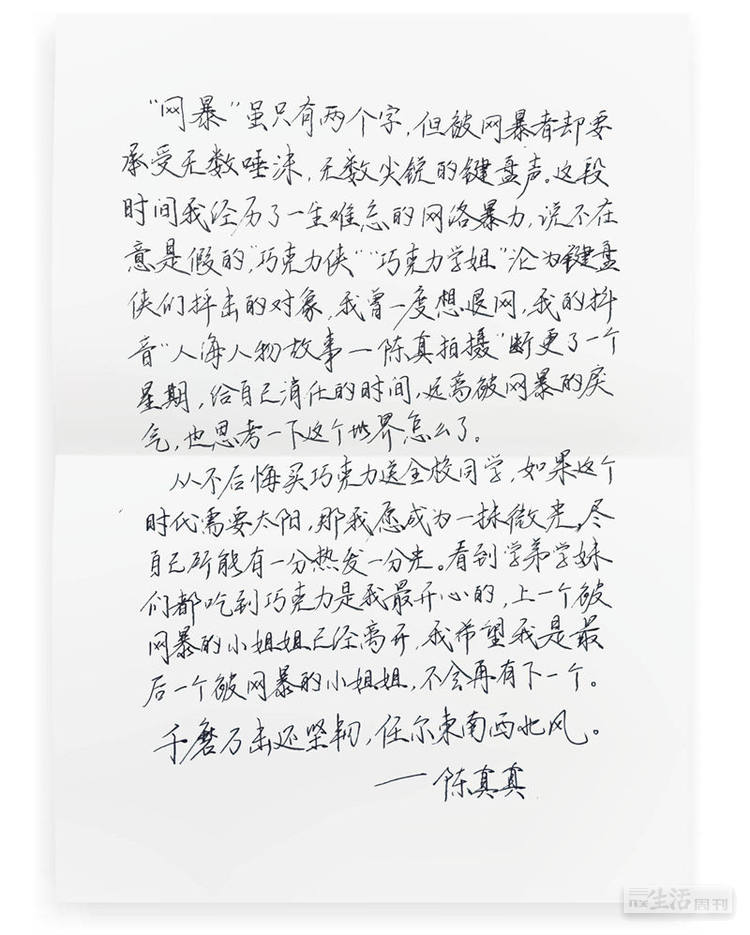 “网暴”虽只有两个字，但被网暴者却要
承受无数唾沫，无数尖锐的键盘声。这段
时间我经历了一生难忘的网络暴力，说不在
意是假的，“巧克力侠”“巧克力学姐”沦为键盘
侠们抨击的对象，我曾一度想退网，我的抖
音“人海人物故事—陈真拍摄”断更了一个
星期，给自己消化的时间，远离被网暴的戾
气，也思考一下这个世界怎么了。
从不后悔买巧克力送全校同学，如果这个
时代需要太阳，那我愿成为一抹微光，尽
自己所能有一分热发一分光。看到学弟学妹
们都吃到巧克力是我最开心的，上一个被
网暴的小姐姐已经离开，我希望我是最
后一个被网暴的小姐姐，不会再有下一个。
千磨万击还坚韧，任尔东南西北风。
——陈真真
生活周刊